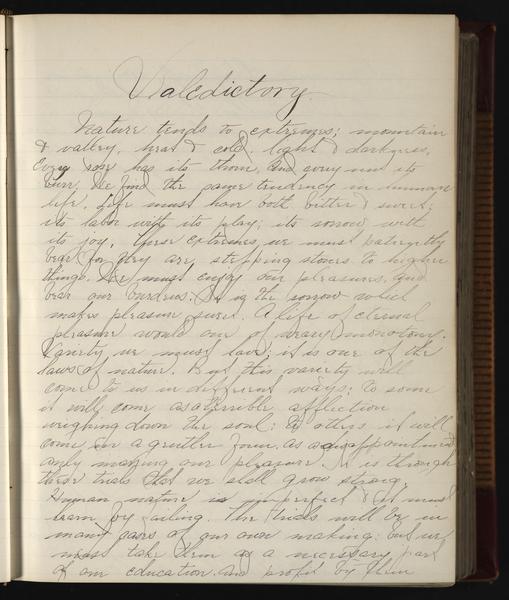 Valedictory.
Nature tends to extremes; mountain
& valley, heat & cold, light & darkness.
Every rose has its thorn, and every nut its
burr. We find the same tendency in human
life. Life must have both bitter & sweet;
its labor with its play; its sorrow with
its joy. These extremes, we must patiently
bear for they are stepping stones to higher
things. We must enjoy our pleasures, and
bear our burdens. It is the sorrow which
makes pleasure sweet. A life of eternal
pleasure would be one of weary monotony.
Variety we must have; it is one of the
laws of nature. But this variety will
come to us in different ways; to some
it will come as a terrible affliction
weighing down the soul: to others it will
come in a gentler form. as a disappointment
only making our pleasure. It is through
these trials that we shall grow strong.
Human nature is imperfect & it must
learn by failing. The trials will be in
many cases of our own making: but we
must take them as a necessary part
of our education. and profit by them